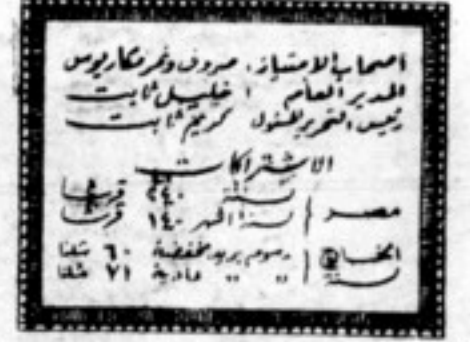 اصحاب الامتياز: صروف ونمر مكاريوس
المدير العام : خليل ثابت
رئيس التحرير المسئول كريم ثابت
الاشتراكات
مصر | سنة ٢٤٠ قرشا
ستة اشهر ١٤٠ قرشا
الخارج | رسوم بريد مخفضة ٦٠ شلنا
سنة | ״ ״ عادية ٧١ شلنا